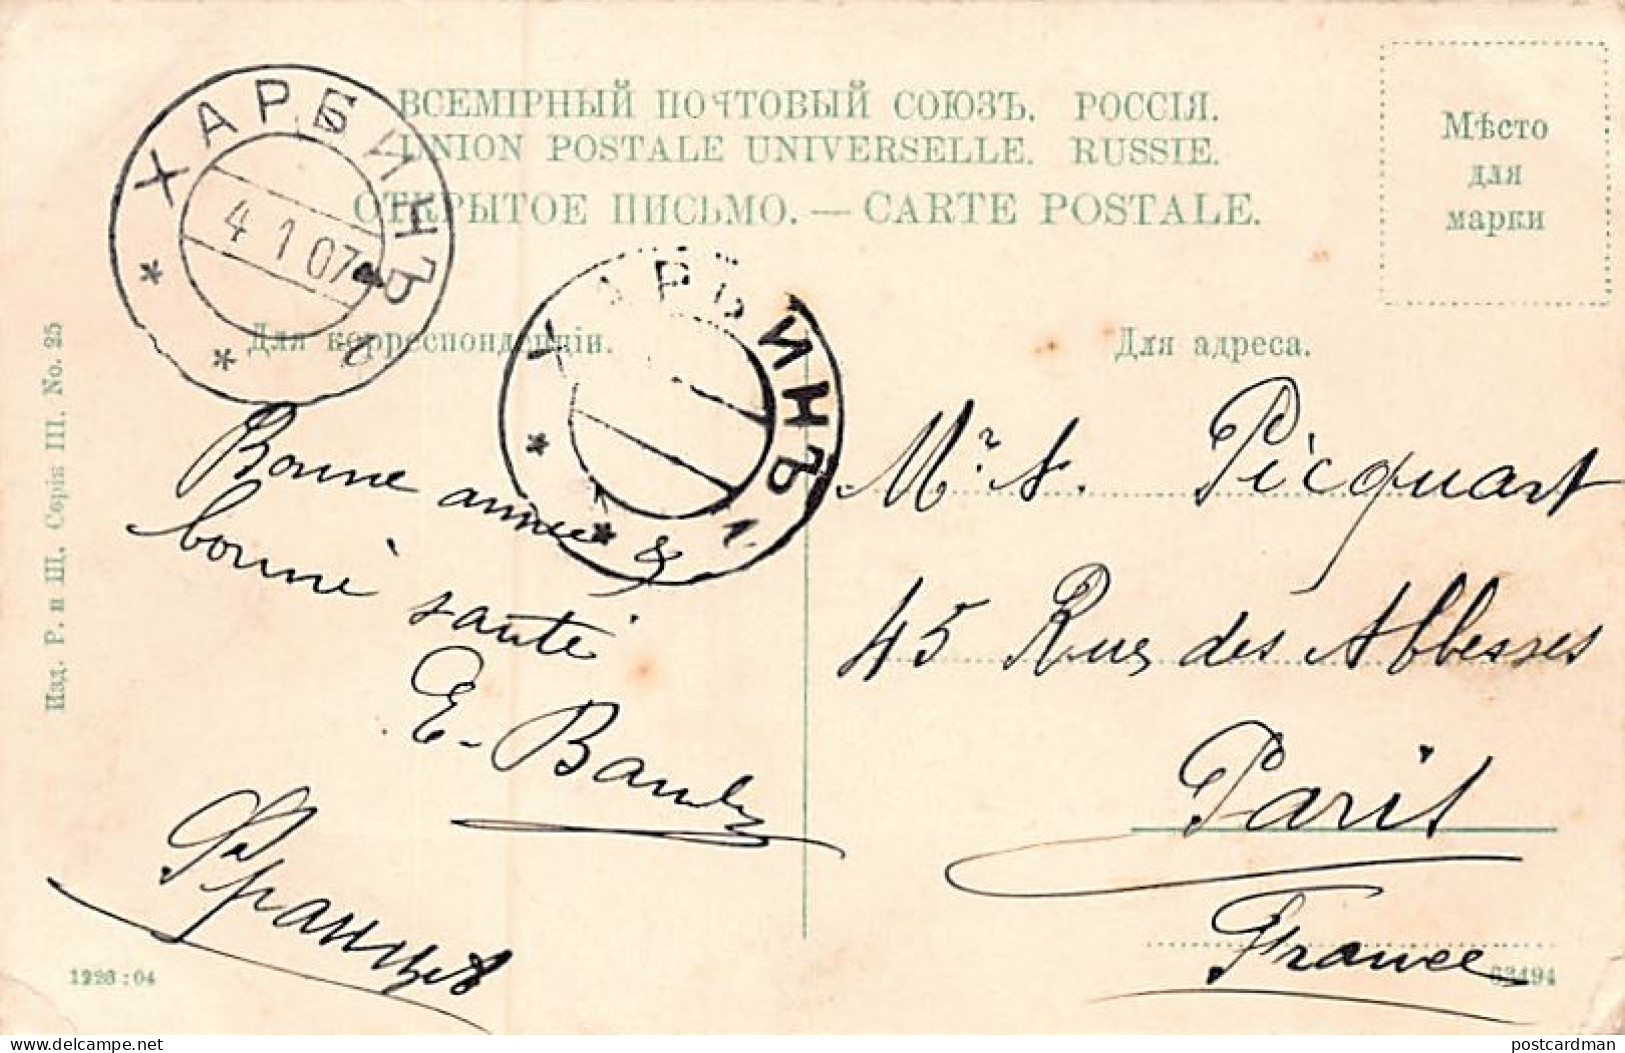 ВСЕМІРНЫЙ ПОЧТОВЫЙ СОЮЗЪ. РОССІЯ.
UNION POSTALE UNIVERSELLE. RUSSIE.
ОТКРЫТОЕ ПИСЬМО. — CARTE POSTALE.
Мѣсто
для
марки
ХАРБИНЪ
4 1 07
ХАРБИНЪ
Для корреспонденціи.
Для адреса.
Изд. Р. и Щ. Серія III. No. 25
Bonne année &
bonne santé
E. Bauly
Mr. A. Picquart
45 Rue des Abbesses
Paris
France
1223 : 04
63494
postcardman
https://www.delcampe.net